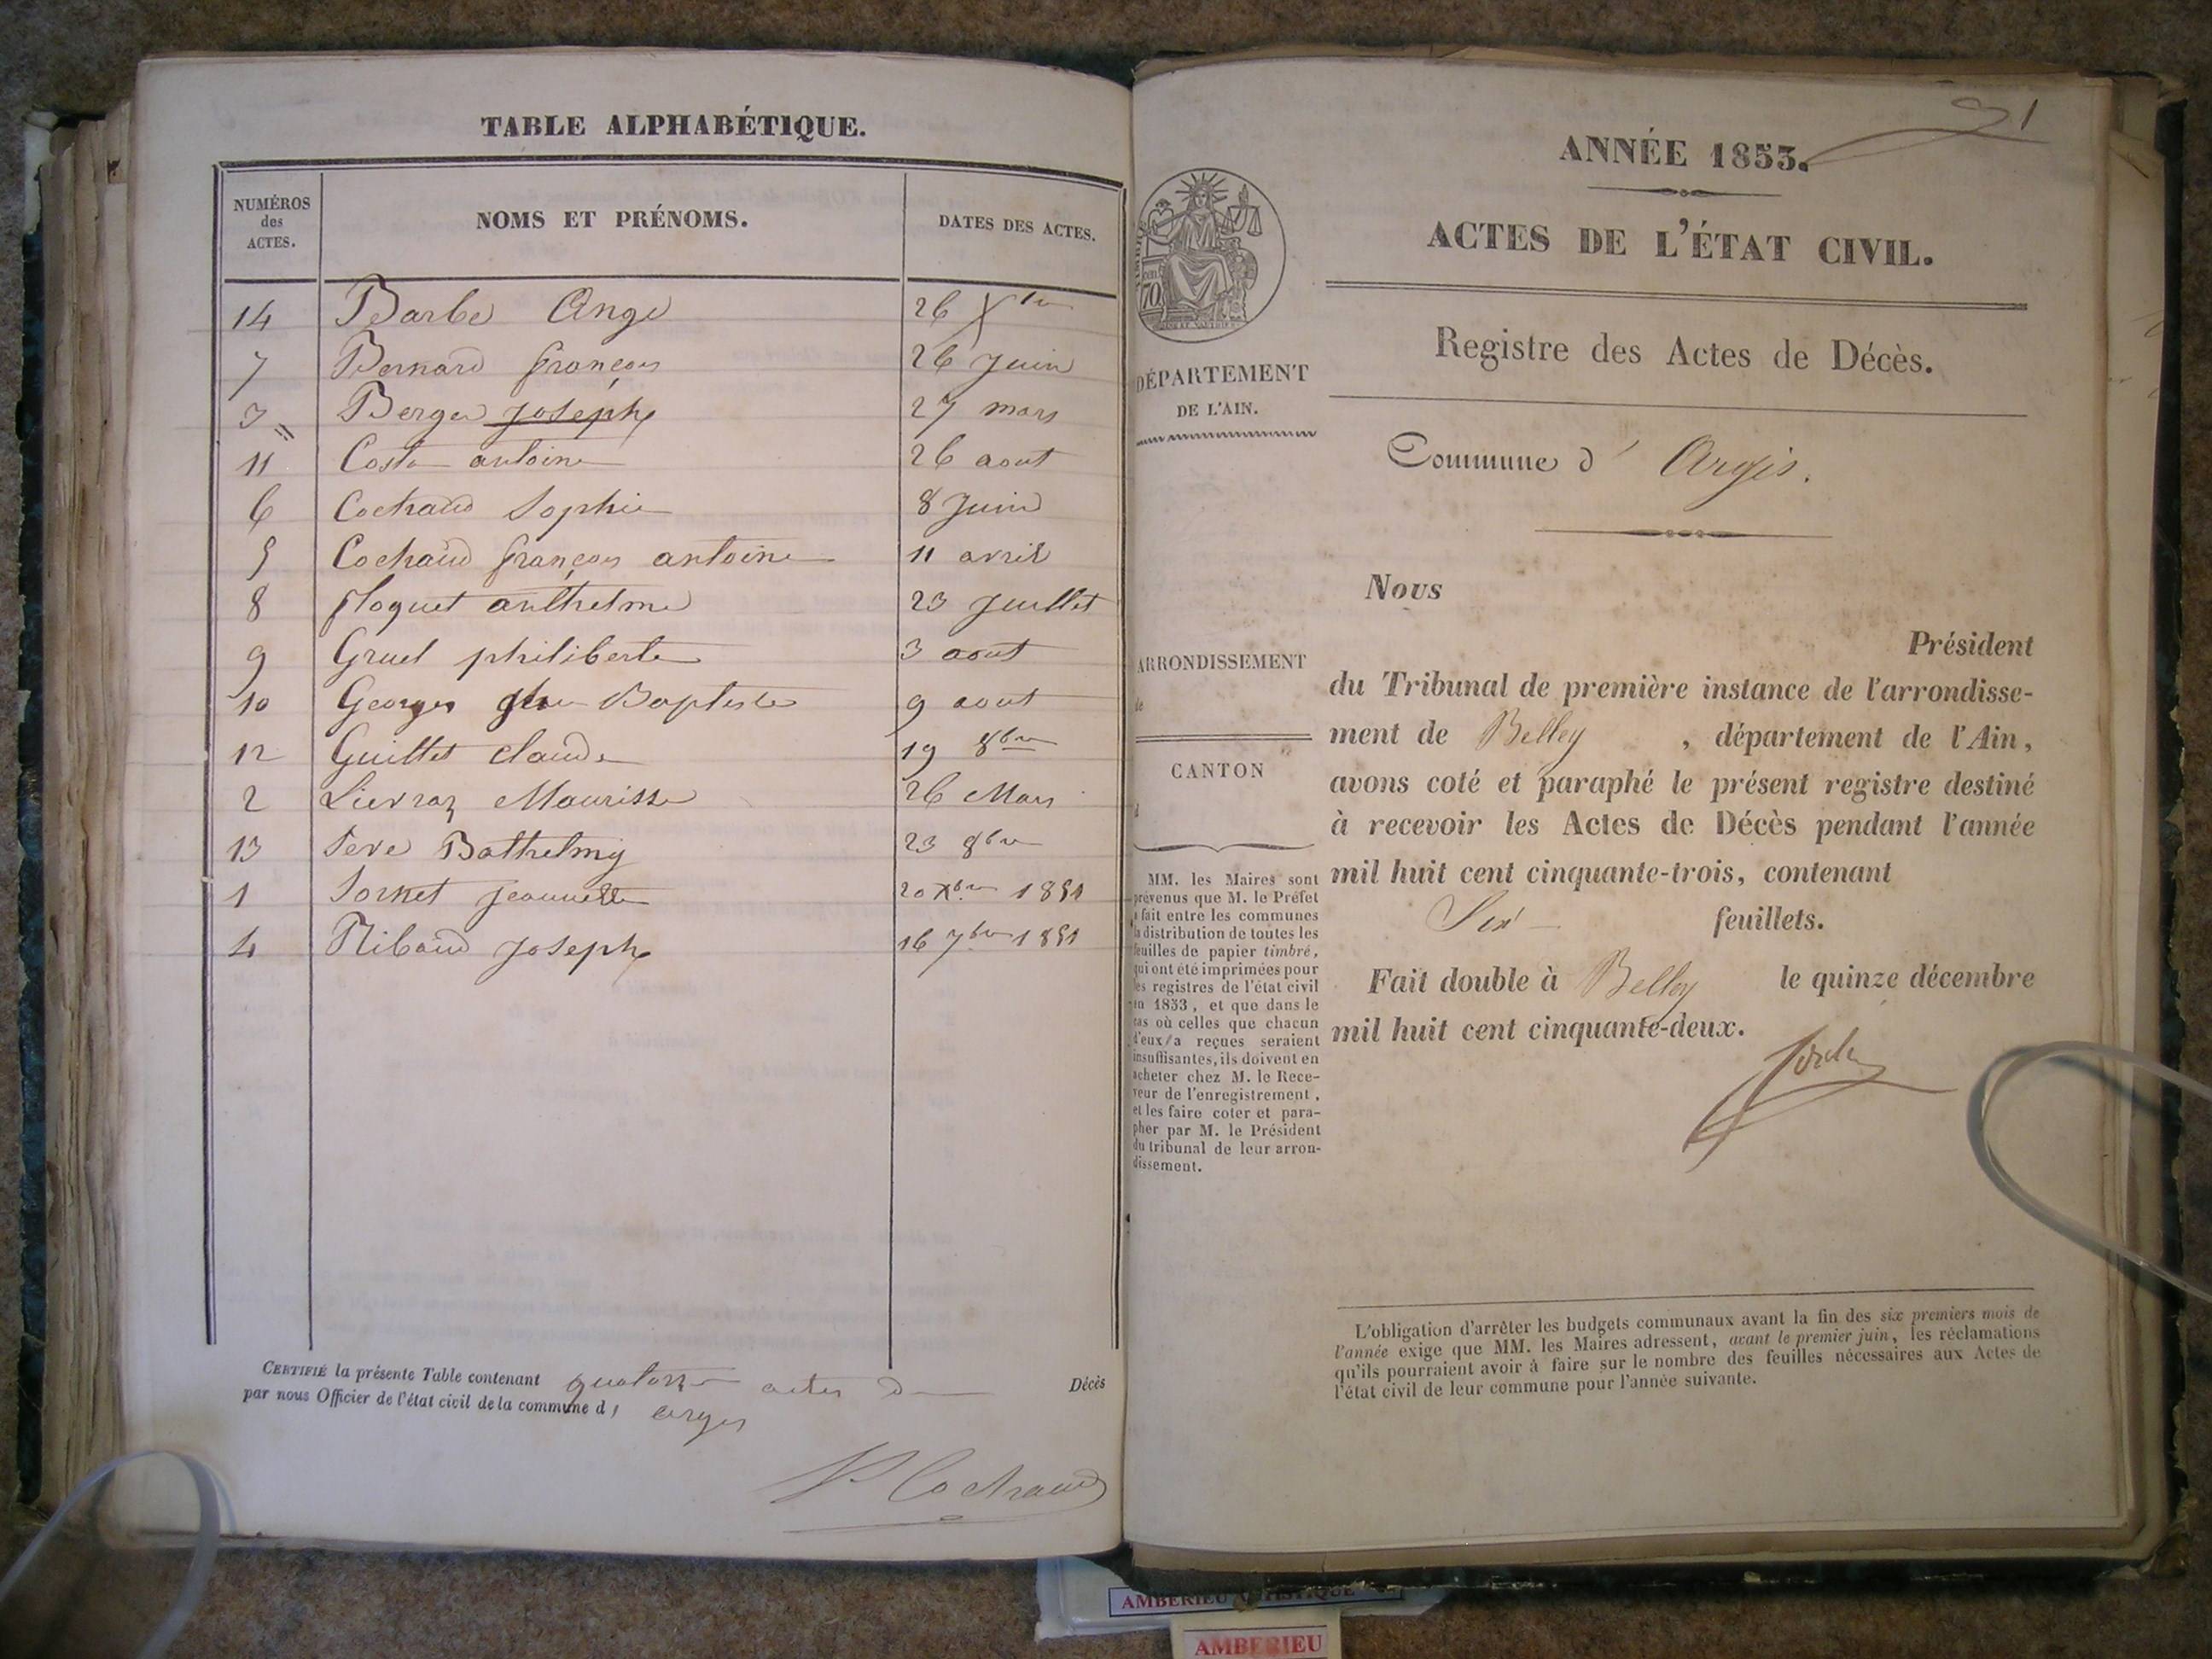 TABLE ALPHABÉTIQUE.
NUMÉROS des ACTES. NOMS ET PRÉNOMS. DATES DES ACTES.
14 Barbe Ange 26 Xbre
7 Bernard françois 26 Juin
3 Berger Joseph 27 mars
11 Costa antoine 26 aout
6 Cochaud Sophie 8 Juin
5 Cochaud françois antoine 11 avril
8 floquet anthelme 23 Juillet
9 Gruel philiberte 3 aout
10 Georges Baptiste 9 aout
12 Guillet Claude 19 8bre
2 Lievraz Maurisse 26 Mars
13 Bathelmy 23 8bre
1 Sornet Jeannette 20 Xbre 1851
4 Ribaud Joseph 16 7bre 1851
CERTIFIÉ la présente Table contenant quatorze actes de Décès
par nous Officier de l'état civil de la commune d' argis
Cochaud
1
ANNÉE 1853.
ACTES DE L'ÉTAT CIVIL.
Registre des Actes de Décès.
DÉPARTEMENT
DE L'AIN.
Commune d' Argis.
Nous
Président
du Tribunal de première instance de l'arrondisse-
ment de Belley , département de l'Ain,
avons coté et paraphé le présent registre destiné
à recevoir les Actes de Décès pendant l'année
mil huit cent cinquante-trois, contenant
Six feuillets.
Fait double à Belley le quinze décembre
mil huit cent cinquante-deux.
ARRONDISSEMENT
de
CANTON
d
MM. les Maires sont
prévenus que M. le Préfet
a fait entre les communes
la distribution de toutes les
feuilles de papier timbré,
qui ont été imprimées pour
les registres de l'état civil
en 1853, et que dans le
cas où celles que chacun
d'eux a reçues seraient
insuffisantes, ils doivent en
acheter chez M. le Rece-
veur de l'enregistrement,
et les faire coter et para-
pher par M. le Président
du tribunal de leur arron-
dissement.
L'obligation d'arrêter les budgets communaux avant la fin des six premiers mois de
l'année exige que MM. les Maires adressent, avant le premier juin, les réclamations
qu'ils pourraient avoir à faire sur le nombre des feuilles nécessaires aux Actes de
l'état civil de leur commune pour l'année suivante.
AMBERIEU
AMBERIEU